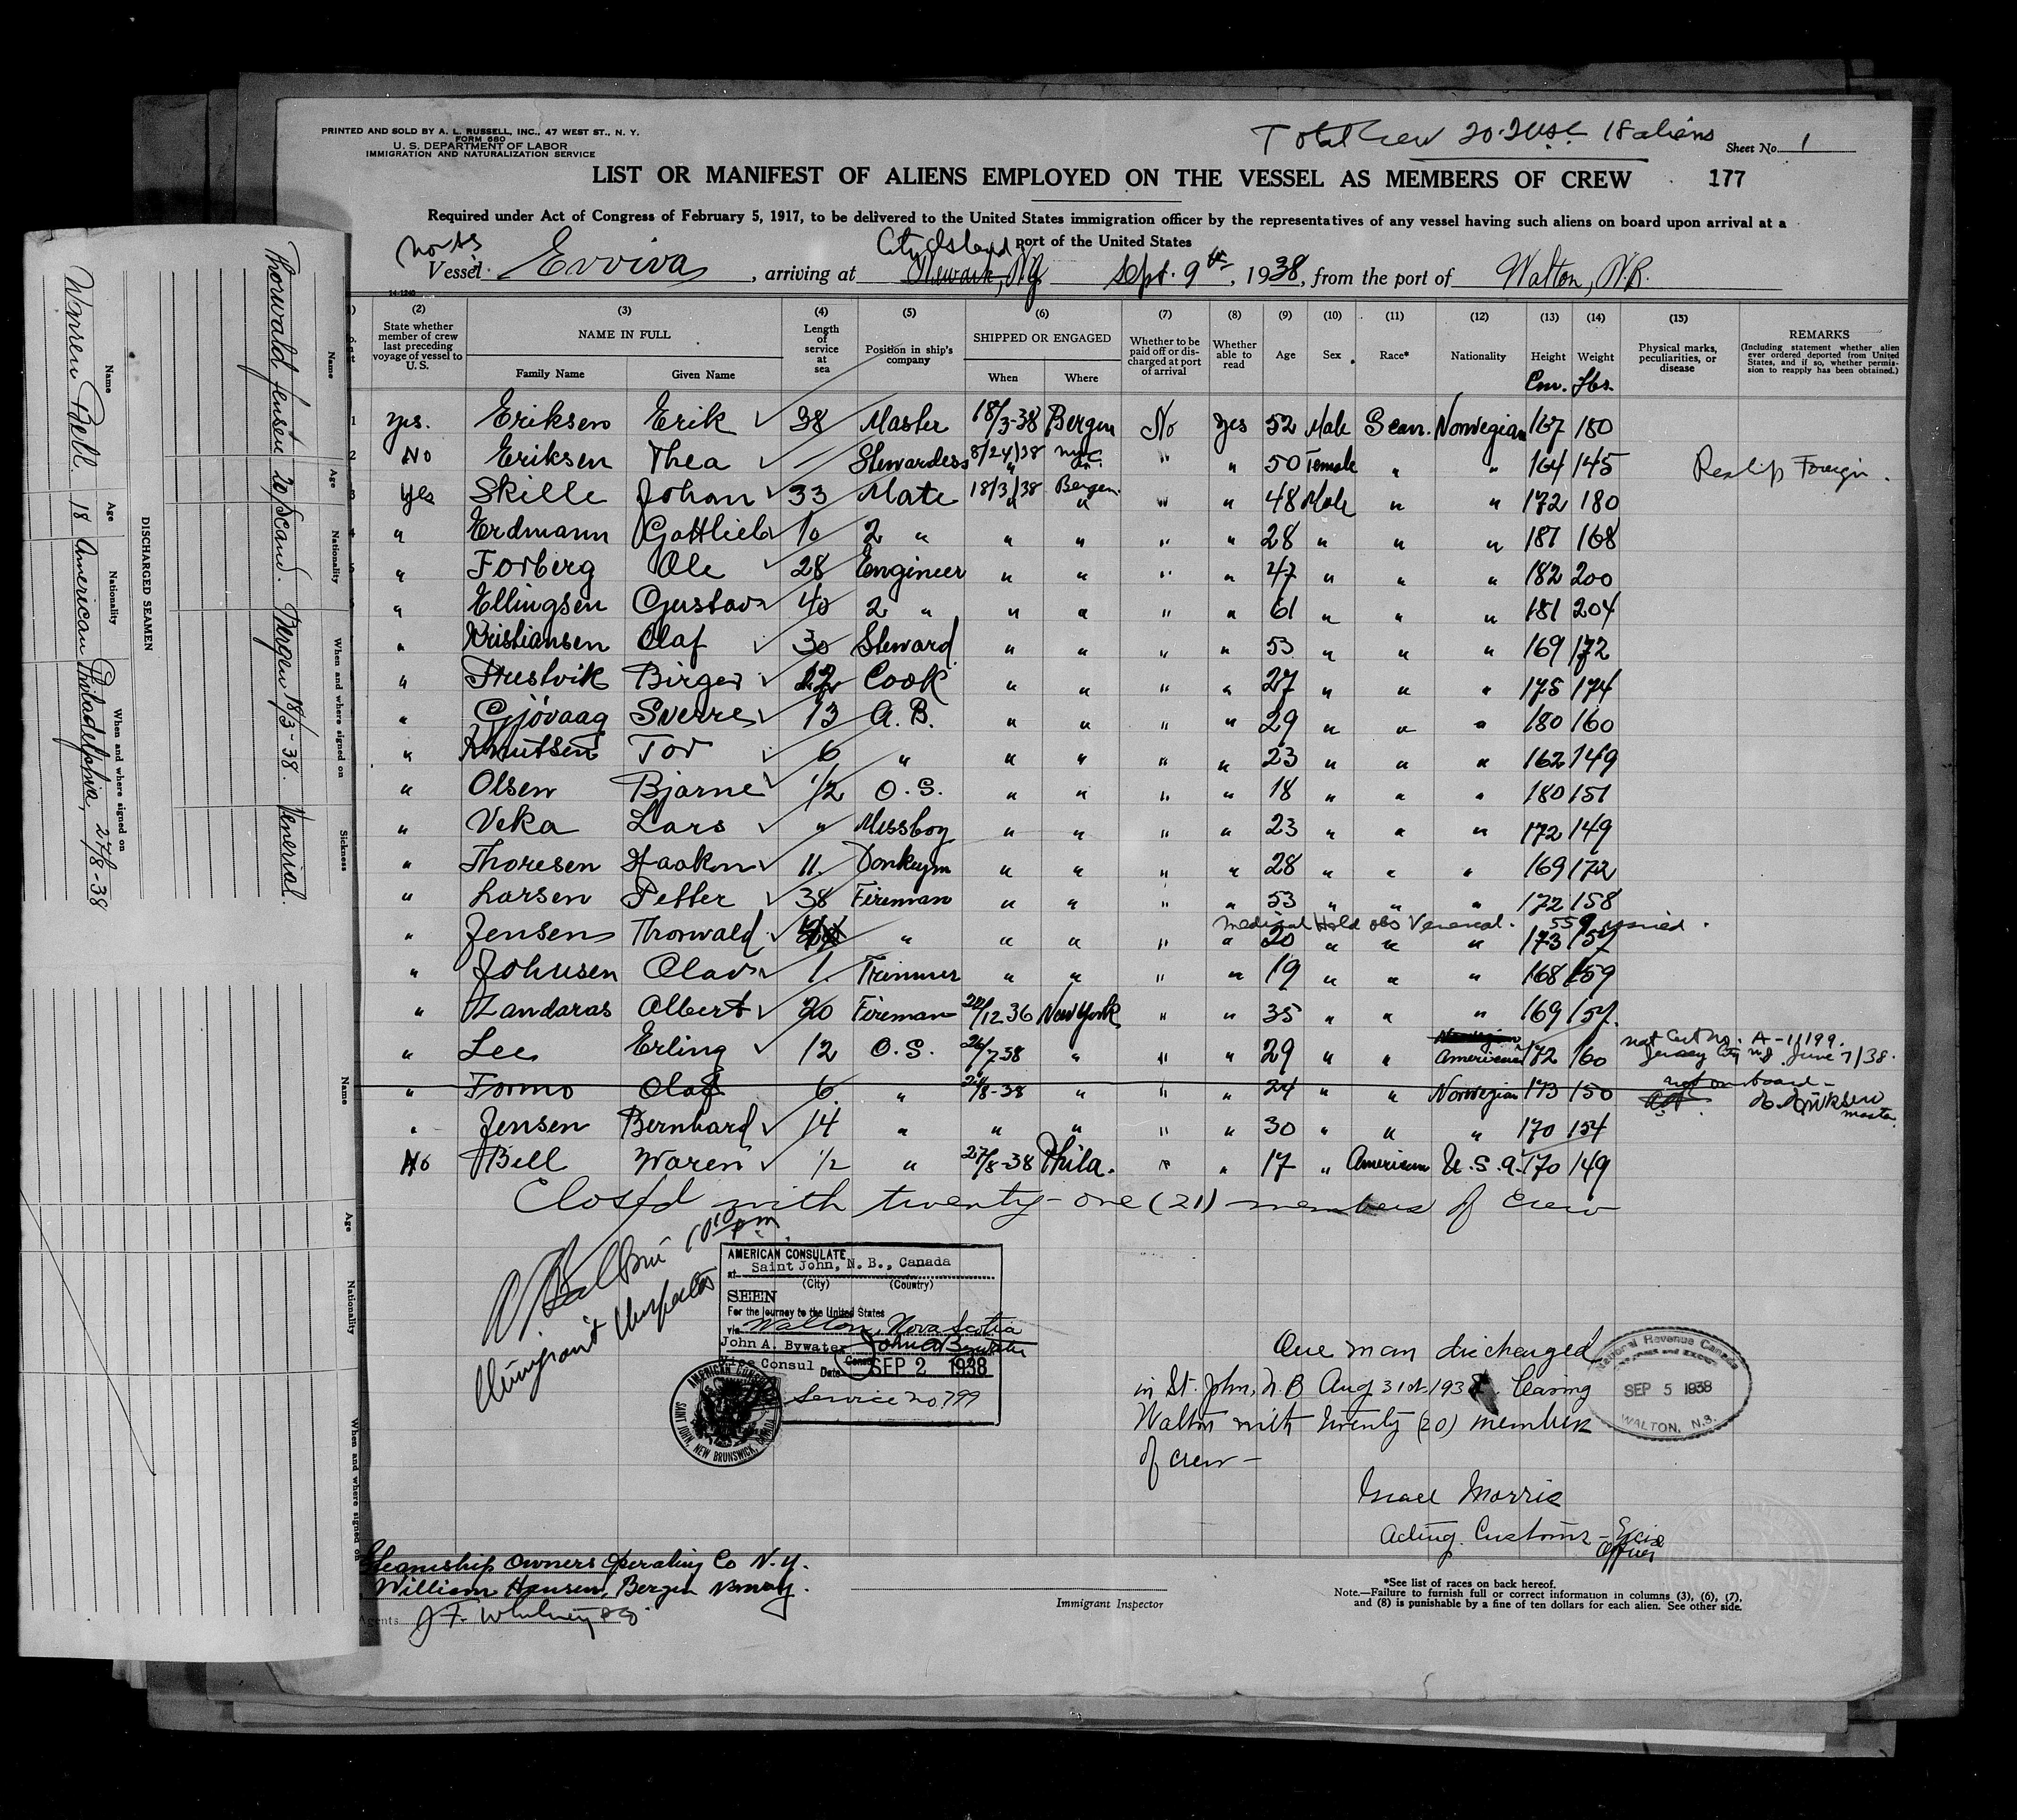 PRINTED AND SOLD BY A. L. RUSSELL, INC., 47 WEST ST., N. Y.
FORM 680
U. S. DEPARTMENT OF LABOR
IMMIGRATION AND NATURALIZATION SERVICE
Total Crew 20-2 USC 18 aliens
Sheet No. 1
LIST OR MANIFEST OF ALIENS EMPLOYED ON THE VESSEL AS MEMBERS OF CREW 177
Required under Act of Congress of February 5, 1917, to be delivered to the United States immigration officer by the representatives of any vessel having such aliens on board upon arrival at a
port of the United States
City Island
Vessel Evviva, arriving at Newark, N.J. Sept. 9th, 1938, from the port of Walton, N.S.
14-1240
(2) State whether member of crew last preceding voyage of vessel to U.S.
(3) NAME IN FULL
Family Name Given Name
(4) Length of service at sea
(5) Position in ship's company
(6) SHIPPED OR ENGAGED
When Where
(7) Whether to be paid off or discharged at port of arrival
(8) Whether able to read
(9) Age
(10) Sex
(11) Race*
(12) Nationality
(13) Height Cm.
(14) Weight Lbs.
(15) Physical marks, peculiarities, or disease
REMARKS
(Including statement whether alien ever ordered deported from United States, and if so, whether permission to reapply has been obtained.)
1 Yes. Eriksen Erik 38 Master 18/3-38 Bergen No Yes 52 Male Scan. Norwegian 167 180
2 No Eriksen Thea — Stewardess 8/24/38 NYC " " 50 Female " " 164 145 Reship Foreign.
3 Yes Skille Johan 33 Mate 18/3/38 Bergen " " 48 Male " " 172 180
4 " Erdmann Gottlieb 10 2 " " " " " 28 " " " 181 168
" Forberg Ole 28 Engineer " " " " 47 " " " 182 200
" Ellingsen Gustav 40 2 " " " " " 61 " " " 181 204
" Kristiansen Olaf 30 Steward " " " " 53 " " " 169 172
" Birger 12 Cook " " " " 27 " " " 175 174
" Gjövaag Sverre 13 A.B. " " " " 29 " " " 180 160
" Knutsen Tor 6 " " " " " 23 " " " 162 149
" Olsen Bjarne 1/2 O.S. " " " " 18 " " " 180 151
" Veka Lars " Messboy " " " " 23 " " " 172 149
" Thoresen Haakon 11. Donkeym " " " " 28 " " " 169 172
" Larsen Petter 38 Fireman " " " " 53 " " " 172 158
Medical Hold obs Venereal. 559 issued.
" Jensen Thorwald " " " " " 20 " " " 173 157
" Johnsen Olav 1. Trimmer " " " " 19 " " " 168 159
" Landaras Albert 20 Fireman 22/12 36 New York " " 35 " " " 169 157
" Lee Erling 12 O.S. 26/7-38 " " " 29 " " American 172 160 nat Cert No. A-11199. Jersey City NJ June 7/38.
" Formo Olaf 6 " 24/8-38 " " " 24 " " Norwegian 173 150 not on board - E. Eriksen master
" Jensen Bernhard 14 " " " " " 30 " " " 170 154
No Bell Waren 1/2 " 27/8-38 Phila. " " 17 " American U.S.A. 170 149
Closed with twenty-one (21) members of Crew
10 10 pm
Immigrant Inspector
AMERICAN CONSULATE
at Saint John, N. B., Canada
(City) (Country)
SEEN
For the journey to the United States
via Walton, Nova Scotia
John A. Bywater John A Bywater
Vice Consul
Date SEP 2 1938
Service no. 799
AMERICAN CONSULATE
SAINT JOHN, NEW BRUNSWICK, CANADA
One man discharged
in St. John, N.B Aug 31st 1938. leaving
Walton with twenty (20) members
of crew -
Israel Morris
Acting Customs - Excise
Officer
National Revenue Canada
SEP 5 1938
WALTON, N.S.
Steamship Owners Operating Co N.Y.
William Hansen, Bergen Norway.
Agents J F. Whitney & Co.
Immigrant Inspector
*See list of races on back hereof.
Note.—Failure to furnish full or correct information in columns (3), (6), (7),
and (8) is punishable by a fine of ten dollars for each alien. See other side.
DISCHARGED SEAMEN
Name Age Nationality When and where signed on Sickness
Thorwald Jensen 20 Scand. Bergen 18/3-38. Venerial
Name Age Nationality When and where signed on
Warren Bell 18 American Philadelphia, 27/8-38
Name Age Nationality When and where signed on